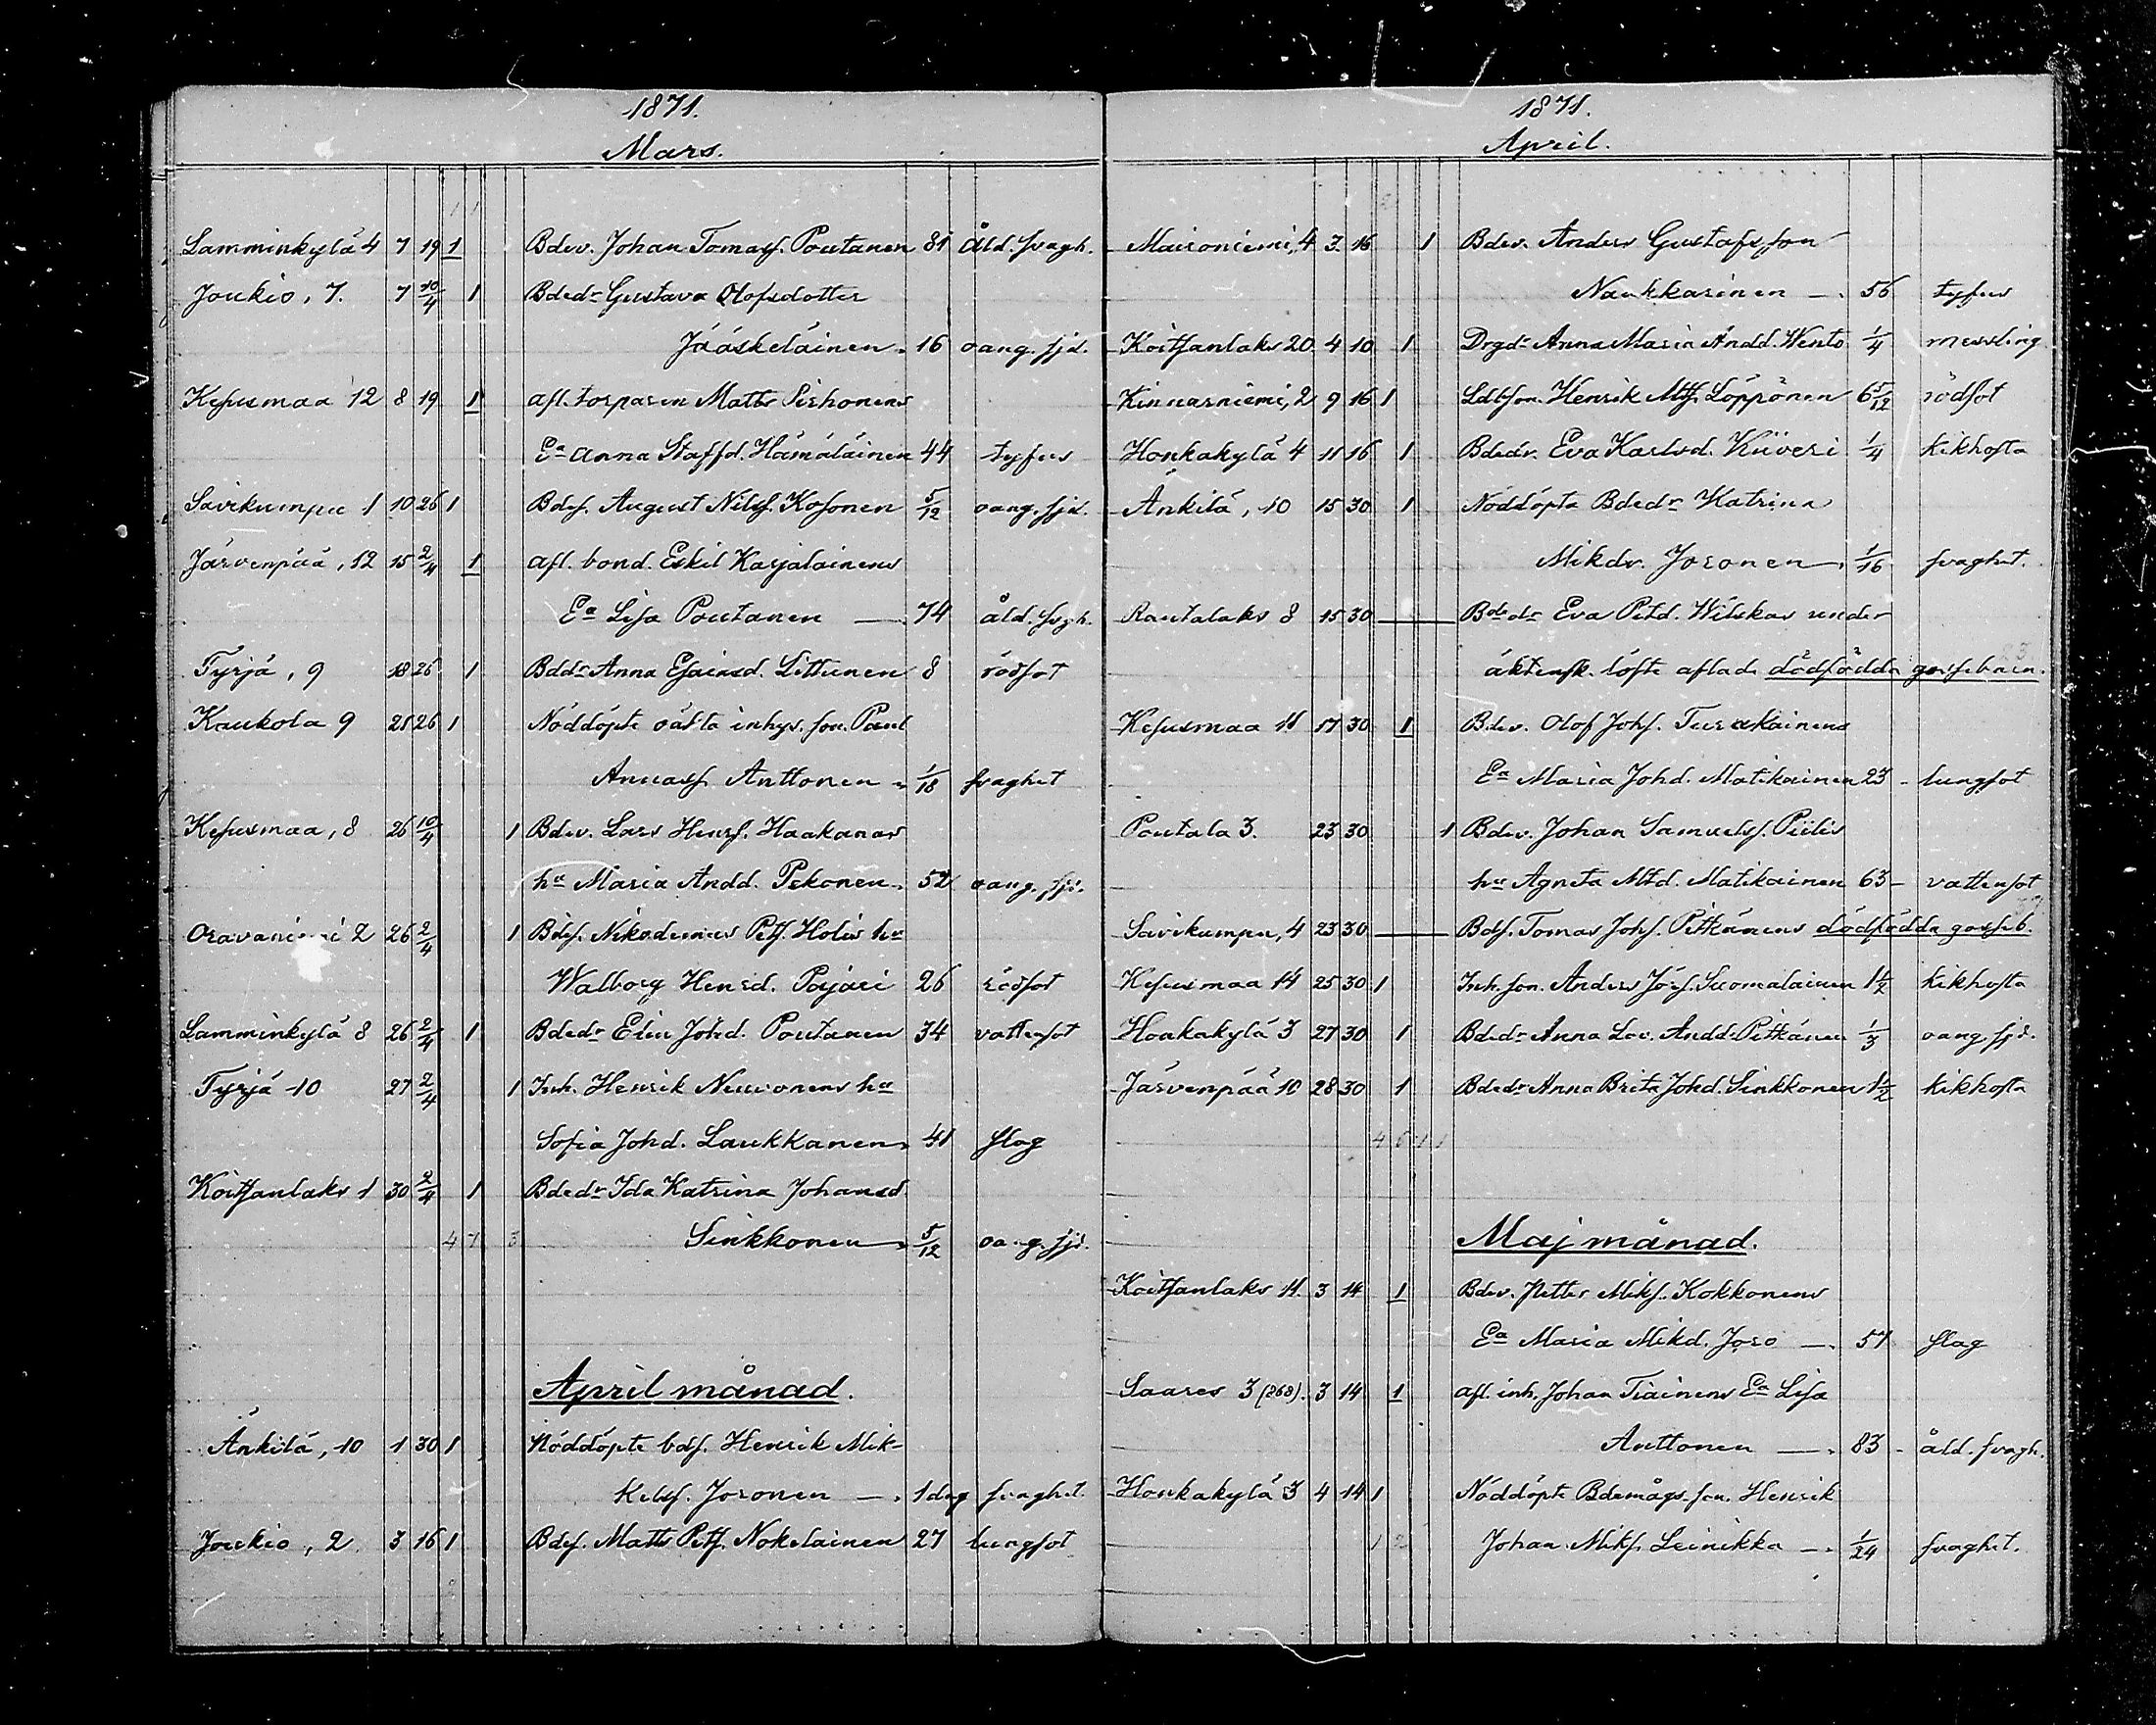 1871.
Mars.
Lamminkylä 4 7 19 1 Bdev. Johan Tomass. Poutanen 81 Åld. svagh.
Joukio, 7. 7 10/4 1 Bdedr Gustava Olofsdotter
Jääskeläinen 16 oang. sjd.
Kesusmaa 12 8 19 1 afl. torparen Matts Pirhonens
Ea Anna Staffd. Hämäläinen 44 tyfus
Savikumpu 1 10 26 1 Bdes. August Nilss. Kosonen 5/12 oang. sjd.
Järvenpää, 12 15 2/4 1 afl. bond. Eskil Karjalainens
Ea Lisa Poutanen — 74 åld. svgh.
Tyrjä, 9 18 26 1 Bddr Anna Esaiasd. Littunen 8 rödsot
Kaukola 9 21 26 1 Nöddöpte oäkta inhys. son. Paul
Annass. Anttonen 1/18 svaghet
Kesusmaa, 8 26 10/4 1 Bdev. Lars Henrs. Haakanas
hu Maria Andd. Pekonen 52 oang. sjd.
Oravaniemi 2 26 2/4 1 Bdes. Nikodemus Pets. Holis hu
Walborg Henrd. Pajari 26 rödsot
Lamminkylä 8 26 2/4 1 Bdedr Elin Johd. Poutanen 34 vattensot
Tyrjä 10 27 2/4 1 Inh. Henrik Neuvonens hu
Sofia Johd. Laukkanen 41 slag
Koitsanlaks 1 30 2/4 1 Bdedr Ida Katrina Johansd
4 7 3 Sinkkonen 5/12 oang. sjd.
April månad.
Änkilä, 10 1 30 1 Nöddöpte bds. Henrik Mik-
kelss. Joronen — 1 dag svaghet.
Joukio, 2 3 16 1 Bdes. Matts Pets. Nokelainen 27 lungsot
1871.
April.
Maironiemi, 4 3 16 1 Bdev. Anders Gustafsson
Naukkarinen — 56 tyfus
Koitsanlaks 20 4 10 1 Drgdr Anna Maria Andd. Wento 1/4 messling
Kinnarniemi, 2 9 16 1 Ldbson. Henrik Mts. Löppönen 6 5/12 rödsot
Honkakylä 4 11 16 1 Bdedr. Eva Karlsd. Kiiveri 1/4 kikhosta
Änkilä, 10 15 30 1 Nöddöpta Bdedr Katrina
Mikdr. Joronen 1/16 svaghet.
Rautalaks 8 15 30 — Bdedr Eva Petd. Wilskas under
äktensk. löfte aflade dödfödda gossebarn.
Kesusmaa 11 17 30 1 Bdev. Olof Johs. Turakainens
Ea Maria Johd. Matikainen 23 - lungsot
Poutala 3. 23 30 1 Bdev. Johan Samuels. Piilis
hu Agneta Mtd. Matikainen 63 - vattensot
Savikumpu, 4 23 30 — Bds. Tomas Johs. Pitkänens dödfödda gosseb.
Kesusmaa 14 25 30 1 Inh. son. Anders Jörs. Suomalainen 1 1/2 kikhosta
Honkakylä 3 27 30 1 Bdedr Anna Lov. Andd. Pitkänen 1/3 oang. sjd.
Järvenpää 10 28 30 1 Bdedr Anna Brita Johd. Sinkkonen 1 1/2 kikhosta
4 6 1 1
Maj månad.
Koitsanlaks 11. 3 14 1 Bdev. Petter Miks. Kokkonens
Ea Maria Mikd. Joro — 57 slag
Saares 3 (268). 3 14 1 afl. inh. Johan Tiainens Ea Lisa
Anttonen — 83 - åld. svagh.
Honkakylä 3 4 14 1 Nöddöpte Bdemågs. son. Henrik
Johan Miks. Leinikka — 1/24 svaghet.